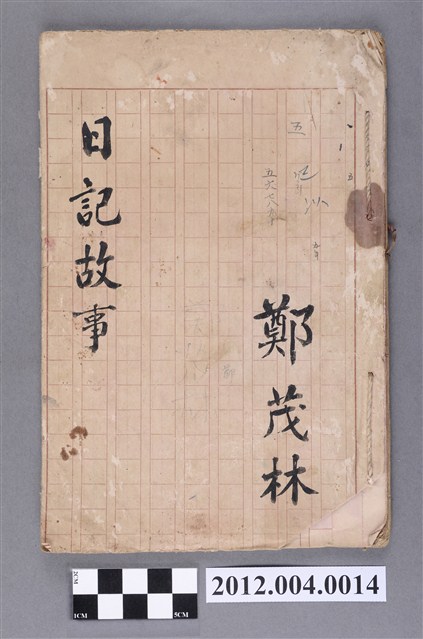 鄭茂林
五
日記故事
2CM
1CM
5CM
2012.004.0014